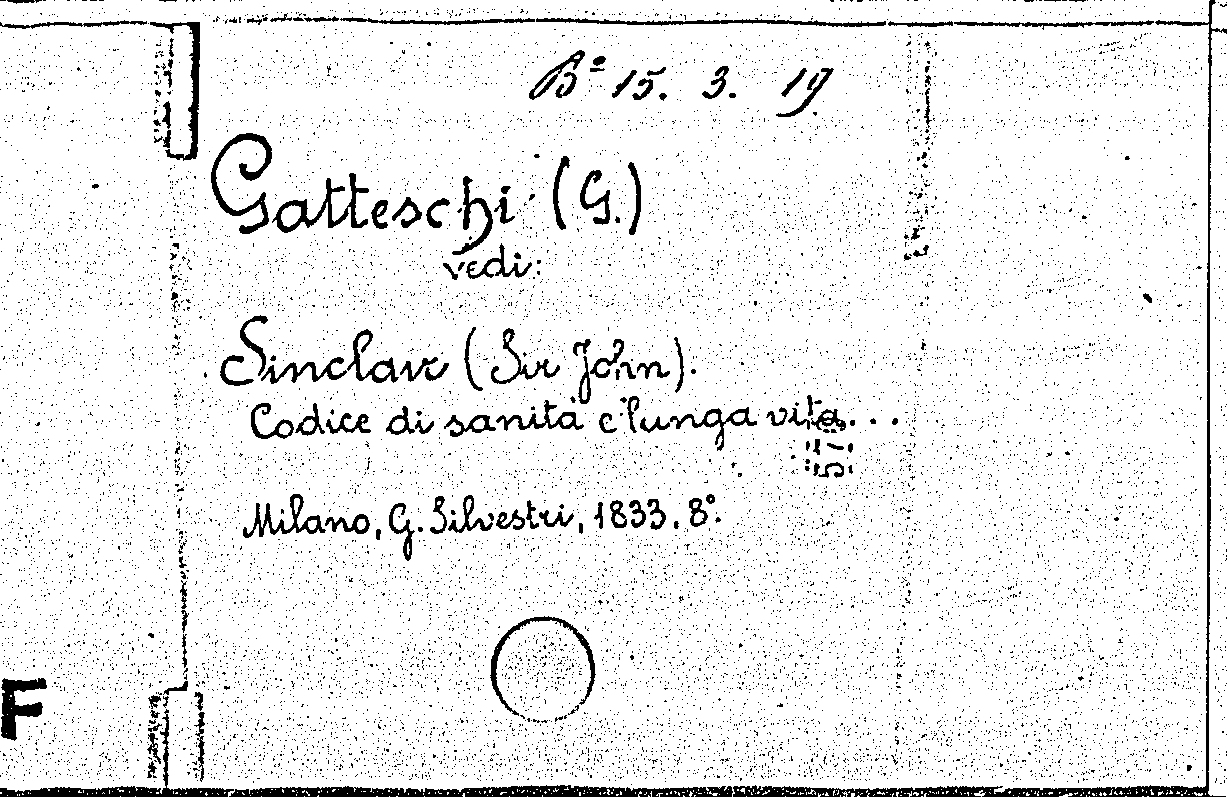 Bº 15. 3. 19
Gatteschi (G.)
vedi:
Sinclair (Sir John).
Codice di sanità e lunga vita...
Milano, G. Silvestri, 1833. 8º.
F